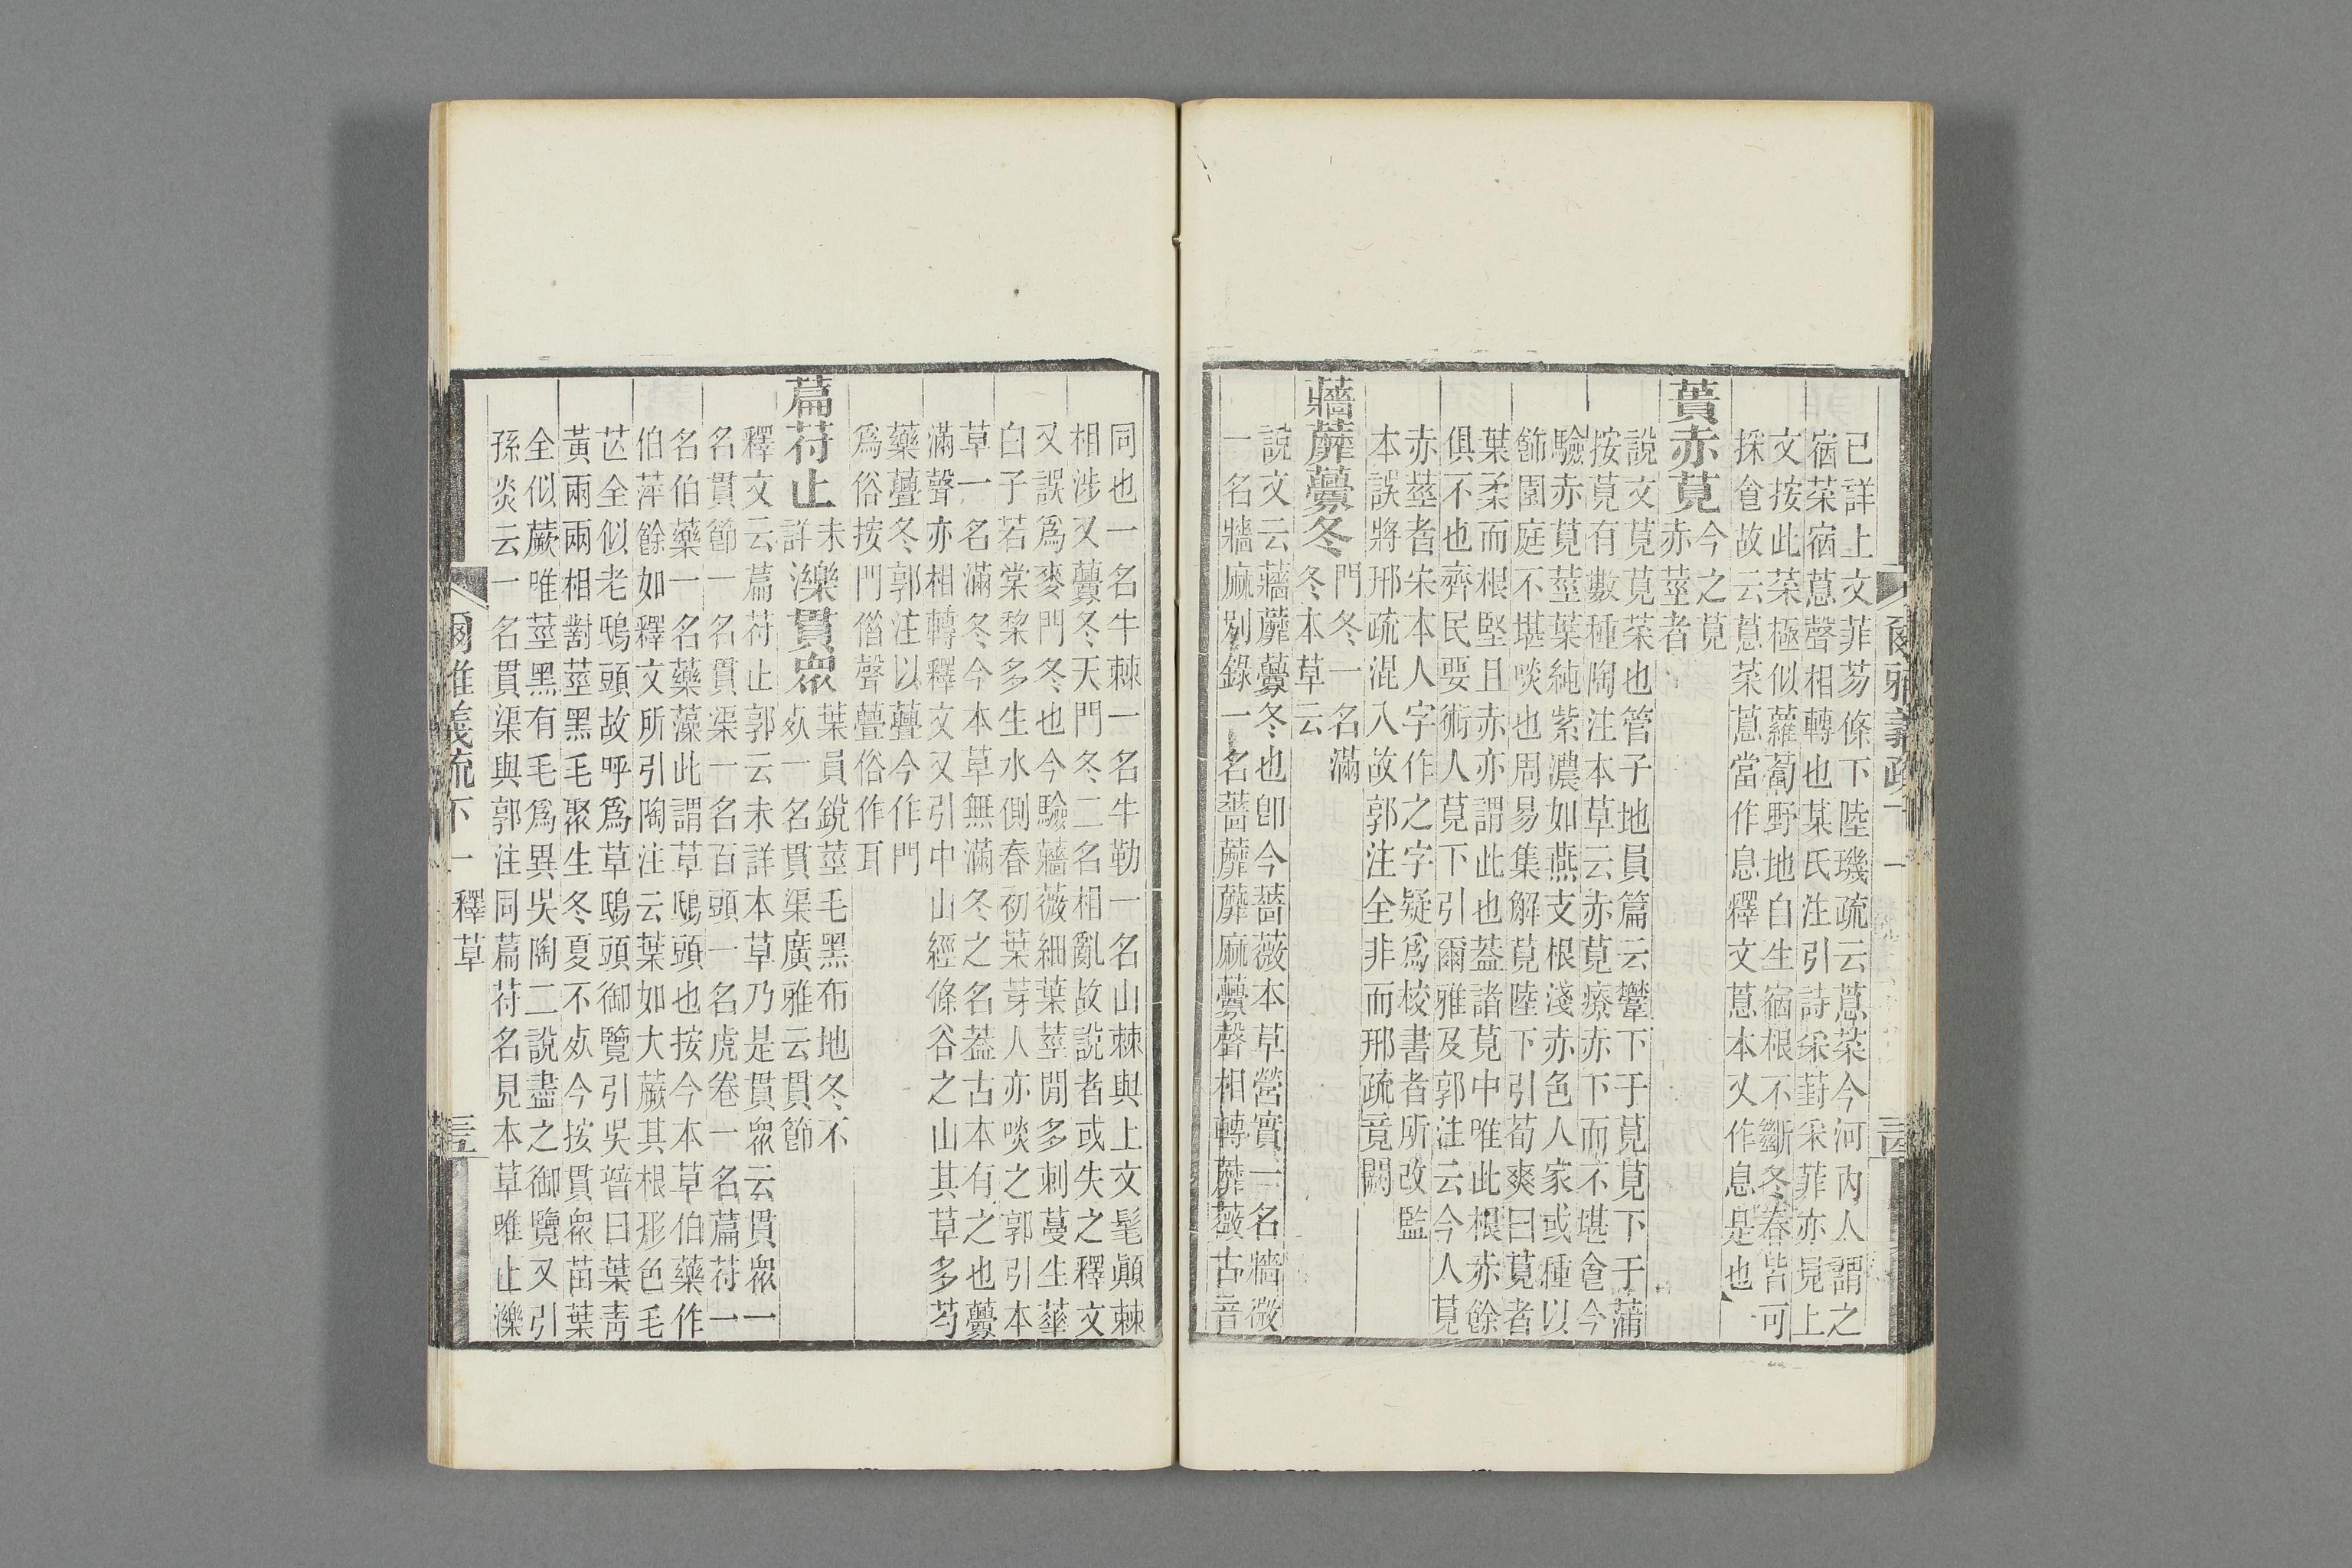 已詳上文菲芴條下陸璣疏云蒠菜今河內人謂之
宿菜宿蒠聲相轉也某氏注引詩采葑采菲亦見上
文按此菜極似蘿蔔野地自生宿根不斷冬春皆可
採食故云蒠菜蒠當作息釋文蒠本又作息是也
蕢赤莧
今之莧
赤莖者
說文莧莧菜也管子地員篇云虉下于莧莧下于蒲
按莧有數種陶注本草云赤莧療赤下而不堪食今
驗赤莧莖葉純紫濃如燕支根淺赤色人家或種以
飾園庭不堪啖也周易集解莧陸下引荀爽曰莧者
葉柔而根堅且赤亦謂此也葢諸莧中唯此根赤餘
俱不也齊民要術人莧下引爾雅及郭注云今人莧
赤莖者宋本人字作之字疑爲校書者所改監
本誤將邢疏混入故郭注全非而邢疏竟闕
蘠蘼虋冬
門冬一名滿
冬本草云
說文云蘠蘼虋冬也卽今薔薇本草營實一名牆薇
一名牆麻別錄一名薔蘼蘼麻虋聲相轉蘼薇古音
同也一名牛棘一名牛勒一名山棘與上文髦顚棘
相涉又虋冬天門冬二名相亂故說者或失之釋文
又誤爲麥門冬也今驗蘠薇細葉莖閒多刺蔓生華
白子若棠棃多生水側春初葉芽人亦啖之郭引本
草一名滿冬今本草無滿冬之名葢古本有之也虋
滿聲亦相轉釋文又引中山經條谷之山其草多芍
藥虋冬郭注以虋今作門
爲俗按門偕聲虋俗作耳
篇苻止
未
詳
濼貫眾
葉員銳莖毛黑布地冬不
㱙一名貫渠廣雅云貫節
釋文云篇苻止郭云未詳本草乃是貫眾云貫眾一
名貫節一名貫渠一名百頭一名虎卷一名篇苻一
名伯藥一名藥藻此謂草鴟頭也按今本草伯藥作
伯萍餘如釋文所引陶注云葉如大蕨其根形色毛
芒全似老鴟頭故呼爲草鴟頭御覽引吳普曰葉靑
黃兩兩相對莖黑毛聚生冬夏不㱙今按貫眾苗葉
全似蕨唯莖黑有毛爲異吳陶二說盡之御覽又引
孫炎云一名貫渠與郭注同篇苻名見本草唯止濼
爾雅義疏下一 釋草